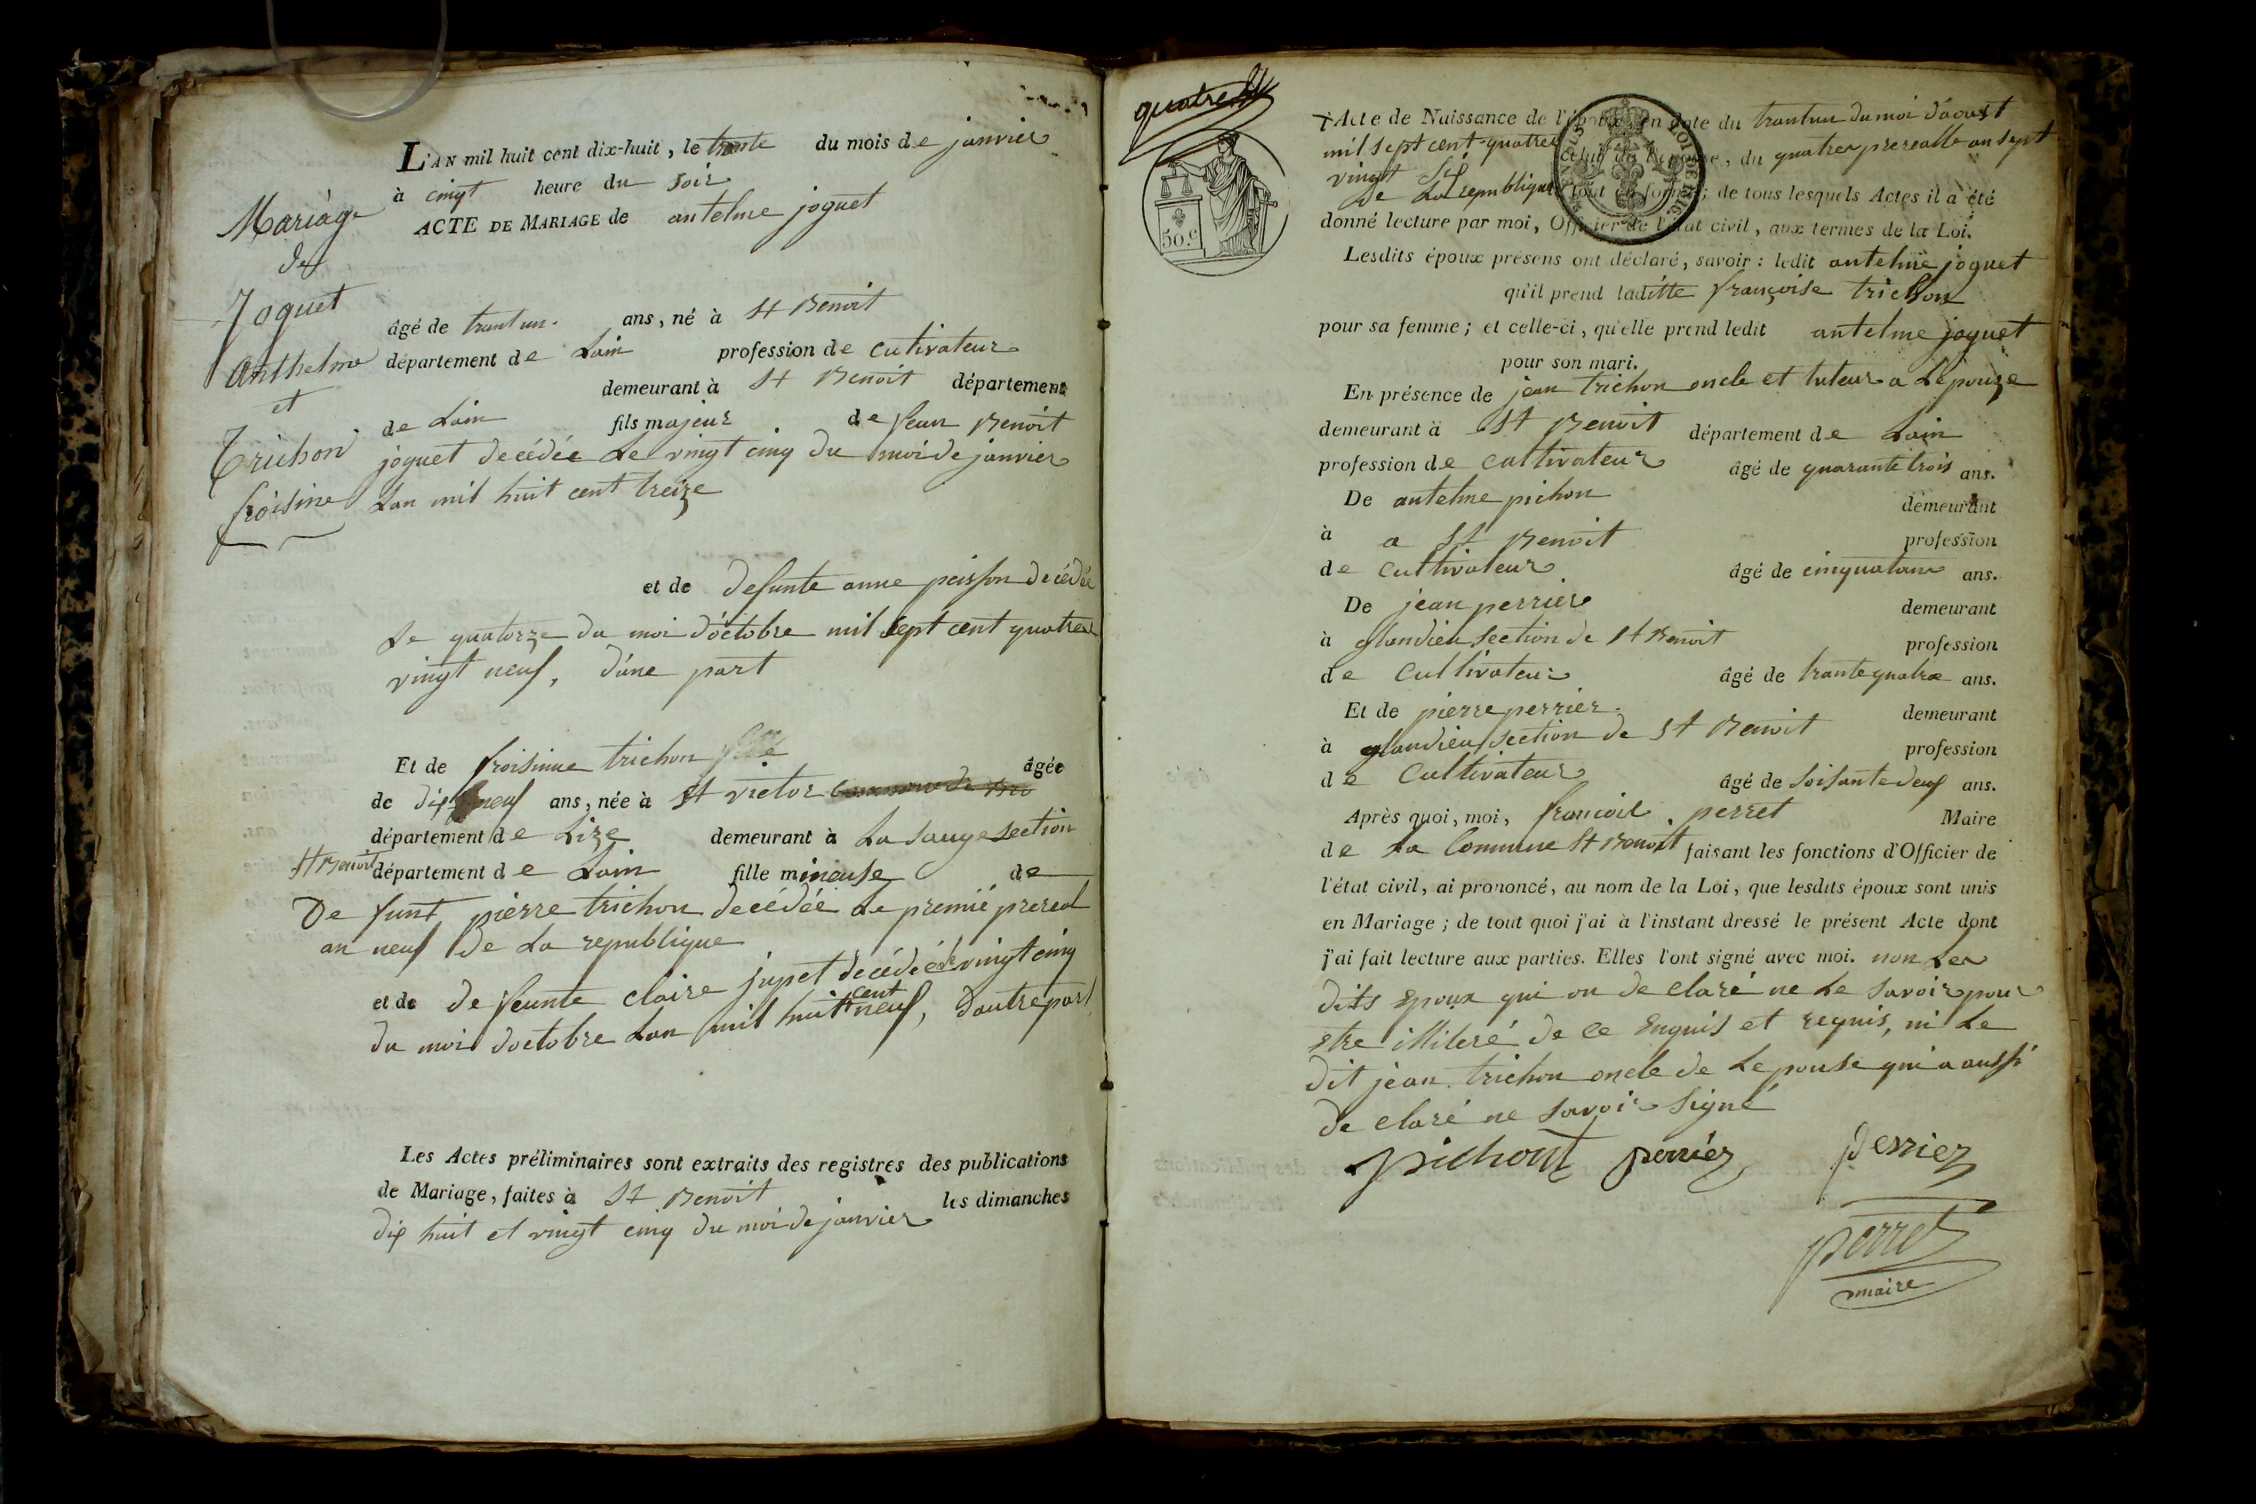 Mariage
de
Joguet
Anthelme
et
Trichon
froisine
L'AN mil huit cent dix-huit, le trante du mois de janvier
à cinqt heure du soir
ACTE DE MARIAGE de antelme joguet
âgé de trantun ans, né à St Benoit
département de Lain profession de cutivateur
demeurant à St Benoit département
de Lain fils majeur de feun Benoit
joguet decédée Le vingt cinq du moi de janvier
Lan mil huit cent treize
et de defunte anne peisson decédée
Le quatorze du moi d'octobre mil sept cent quatre
vingt neuf, d'une part
Et de froisinne trichon âgée
de dix neuf ans, née à St victor
département de Lize demeurant à La sauge section
St Benoit département de Lain fille mineuse de
De funt pierre trichon decédée Le premié prereal
an neuf de La republique
et de de feunte claire jupet decédée le vingt cinq
du moi doctobre Lan mil huit cent neuf, dautre part
Les Actes préliminaires sont extraits des registres des publications
de Mariage, faites à St Benoit les dimanches
dix huit et vingt cinq du moi de janvier
quatre
50 c
LOI DE 1816
Acte de Naissance de l'époux en date du trantun du moi d'aoust
mil sept cent quatre celui de l'épouse, du quatre prerealle an sept
vingt six
de La republique tout en forme; de tous lesquels Actes il a été
donné lecture par moi, Officier de l'état civil, aux termes de la Loi.
Lesdits époux présens ont déclaré, savoir: ledit antelme joguet
qu'il prend laditte françoise trichon
pour sa femme; et celle-ci, qu'elle prend ledit antelme joguet
pour son mari.
En présence de jean trichon oncle et tuteur a Lepouze
demeurant à St Benoit département de Lain
profession de cultivateur âgé de quarante trois ans.
De antelme pichon demeurant
à a St Benoit profession
de cultivateur âgé de cinquatan ans.
De jean perrier demeurant
à glandieu section de St Benoit profession
de cultivateur âgé de trante quatre ans.
Et de pierre perrier demeurant
à glandieu section de St Benoit profession
de Cultivateur âgé de soisante deuf ans.
Après quoi, moi, francoil perret Maire
de La Commune St Benoit faisant les fonctions d'Officier de
l'état civil, ai prononcé, au nom de la Loi, que lesdits époux sont unis
en Mariage; de tout quoi j'ai à l'instant dressé le présent Acte dont
j'ai fait lecture aux parties. Elles l'ont signé avec moi. non Les
dits Epoux qui on de claré ne Le savoir pour
etre illiteré de ce Enquis et requis, ni Le
dit jean trichon oncle de Lepouse qui a aussi
de claré ne savoir signé
pichont perrier perrier
perret
maire